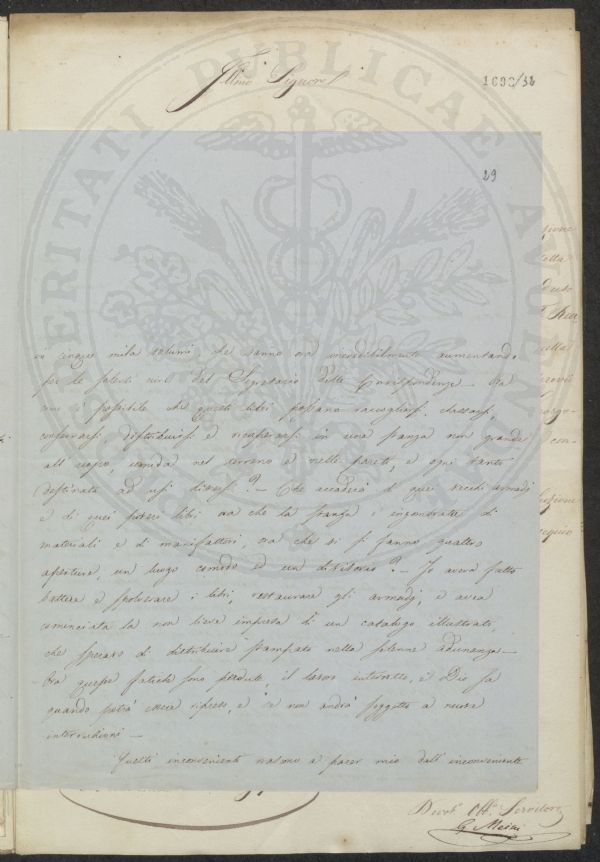 Illmo Signore
1693/36
29
in cinque mila volumi, che vanno ora incredibilmente aumentando
per le solerti cure del Segretario delle Corrispondenze — Ma
come è possibile che questi libri possano raccogliersi, classarsi,
conservarsi distribuirsi e ricuperarsi in una stanza non grande
all'uopo, umida nel terreno e nelle pareti, e ogni tanto
destinata ad usi diversi? — Che accadrà di quei vecchi armadj
e di quei poveri libri ora che la stanza è ingombrata di
materiali e di manifattori, ora che vi si fanno quattro
aperture, un luogo comodo ed un divisorio? — Io aveva fatto
battere e spolverare i libri, restaurare gli armadj, e avea
cominciata la non lieve impresa di un catalogo illustrato,
che sperava di distribuire stampato nella solenne adunanza —
Ora queste fatiche sono perdute, il lavoro interrotto, e Dio sa
quando potrà essere ripreso, e se non andrà soggetto a nuove
interruzioni —
Questi inconvenienti nascono a parer mio dall'inconveniente
Devot. Obb. Servitore
G. Meini
PROSPERITATI PUBLICAE AUGENDAE